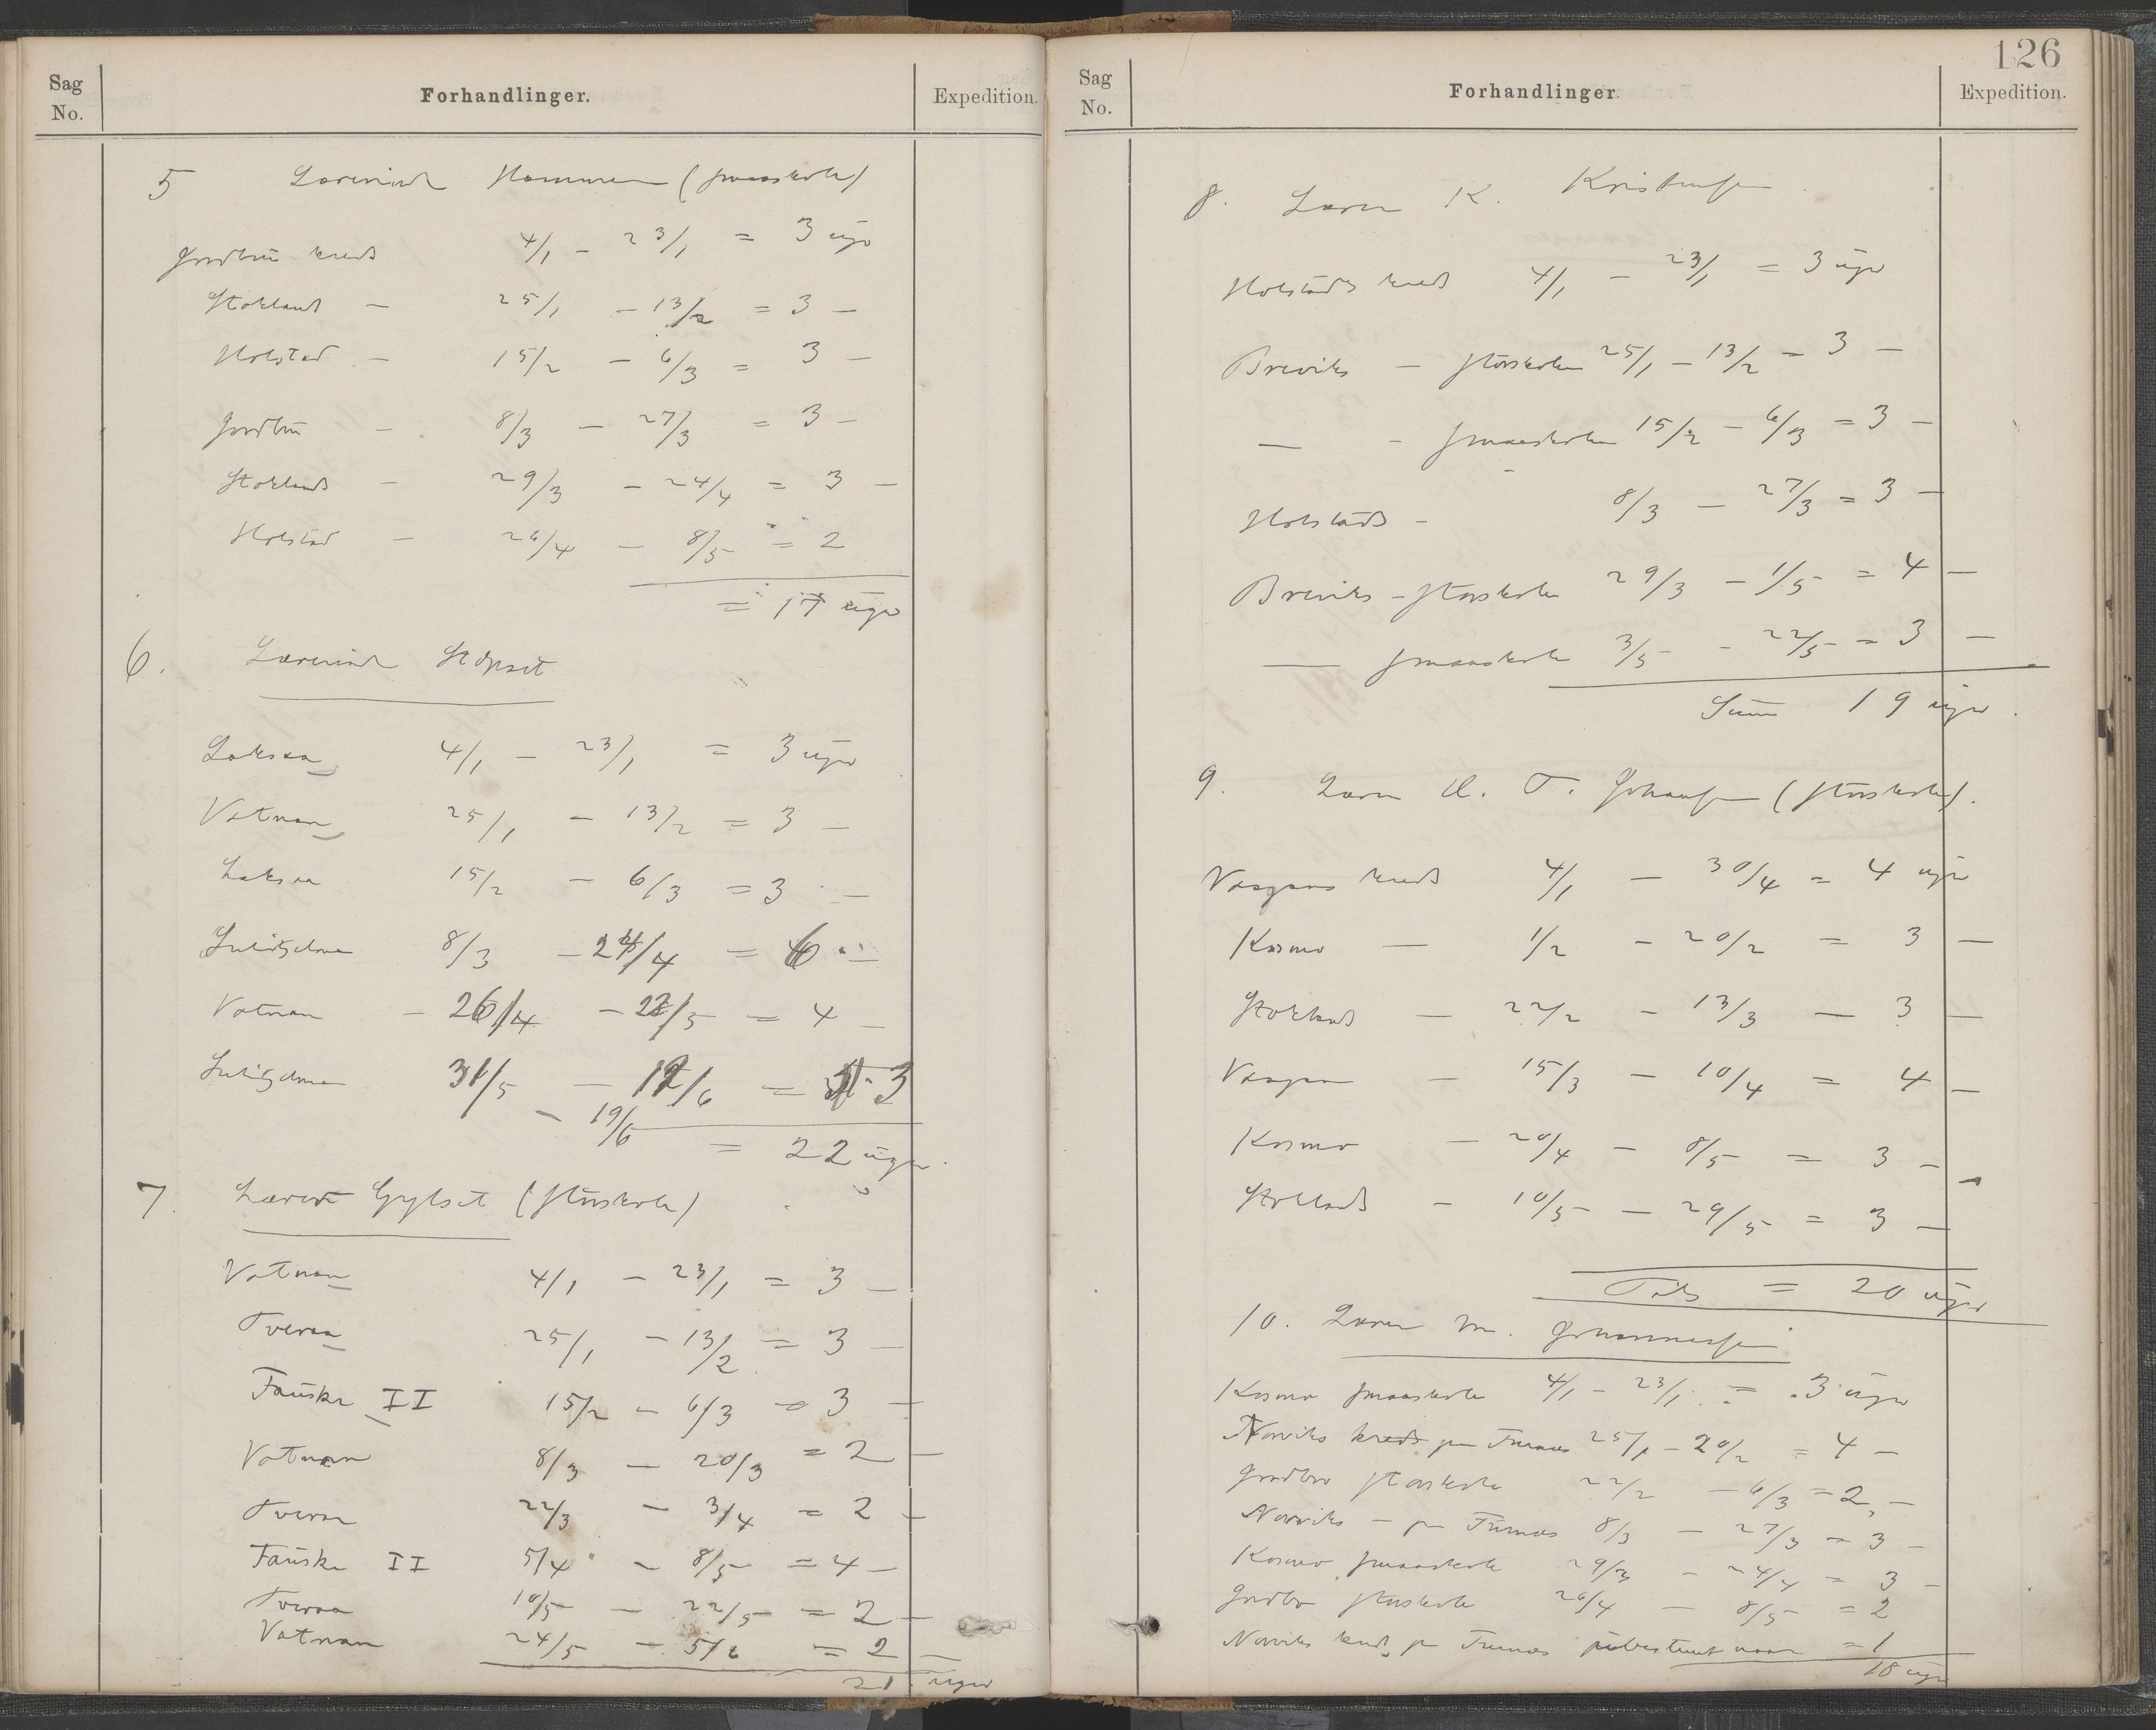 Sag
No.
Forhandlinger.
Expedition.
5 Lærerinde Hammer (smaaskole)
Godtun kreds 4/1 - 23/1 = 3 uger
Stokland - 25/1 - 13/2 = 3 -
Holstad - 15/2 - 6/3 = 3 -
- 8/3 - 27/3 = 3 -
Stokland - 29/3 - 24/4 = 3 -
Holstad - 26/4 - 8/5 = 2
= 17 uger
6. Lærerinde
Laksaa 4/1 - 23/1 = 3 uger
Vatnan 25/1 - 13/2 = 3 -
Laksaa 15/2 - 6/3 = 3 -
8/3 - 24/4 = 6 -
Vatnan - 26/4 - 22/5 = 4 -
31/5 - /6 = 3
- 19/6
= 22 uger
7. Lærer Gylset (storskole)
Vatnan 4/1 - 23/1 = 3 -
Tveraa 25/1 - 13/2 = 3 -
Fauske II 15/2 - 6/3 = 3 -
Vatnan 8/3 - 20/3 = 2 -
Tveraa 22/3 - 3/4 = 2 -
Fauske II 5/4 - 8/5 = 4 -
Tveraa 10/5 - 22/5 = 2 -
Vatnan 24/5 - 5/6 = 2 -
21 uger
126
Sag
No.
Forhandlinger.
Expedition.
8. Lærer K. Kristensen
Holstads kreds 4/1 - 23/1 = 3 uger
Breviks - storskolen 25/1 - 13/2 = 3 -
— - smaaskolen 15/2 - 6/3 = 3 -
Holstads - 8/3 - 27/3 = 3 -
Breviks - storskole 29/3 - 1/5 = 4 -
— smaaskole 3/5 - 22/5 = 3 -
Sum 19 uger.
9. Lærer T. Johansen (storskole).
Vaagans kreds 4/1 - 30/4 = 4 uger
Kosmo — 1/2 - 20/2 = 3 —
Stoklands — 22/2 - 13/3 — 3 —
Vaagan — 15/3 - 10/4 = 4 —
Kosmo — 20/4 - 8/5 = 3 —
Stoklands - 10/5 - 29/5 = 3 —
Tils = 20 uger
10. Lærer M. Johannessen
Kosmo smaaskole 4/1 - 23/1 = 3 uger
Norviks kreds paa Furnes 25/1 - 20/2 = 4 -
storskole 22/2 - 6/3 = 2 -
Norviks - paa Furnes 8/3 - 27/3 = 3 -
Kosmo smaaskole 29/3 - 24/4 = 3 -
storskole 26/4 - 8/5 = 2
Norviks kreds paa Furnes ubestemt naar = 1
18 uger